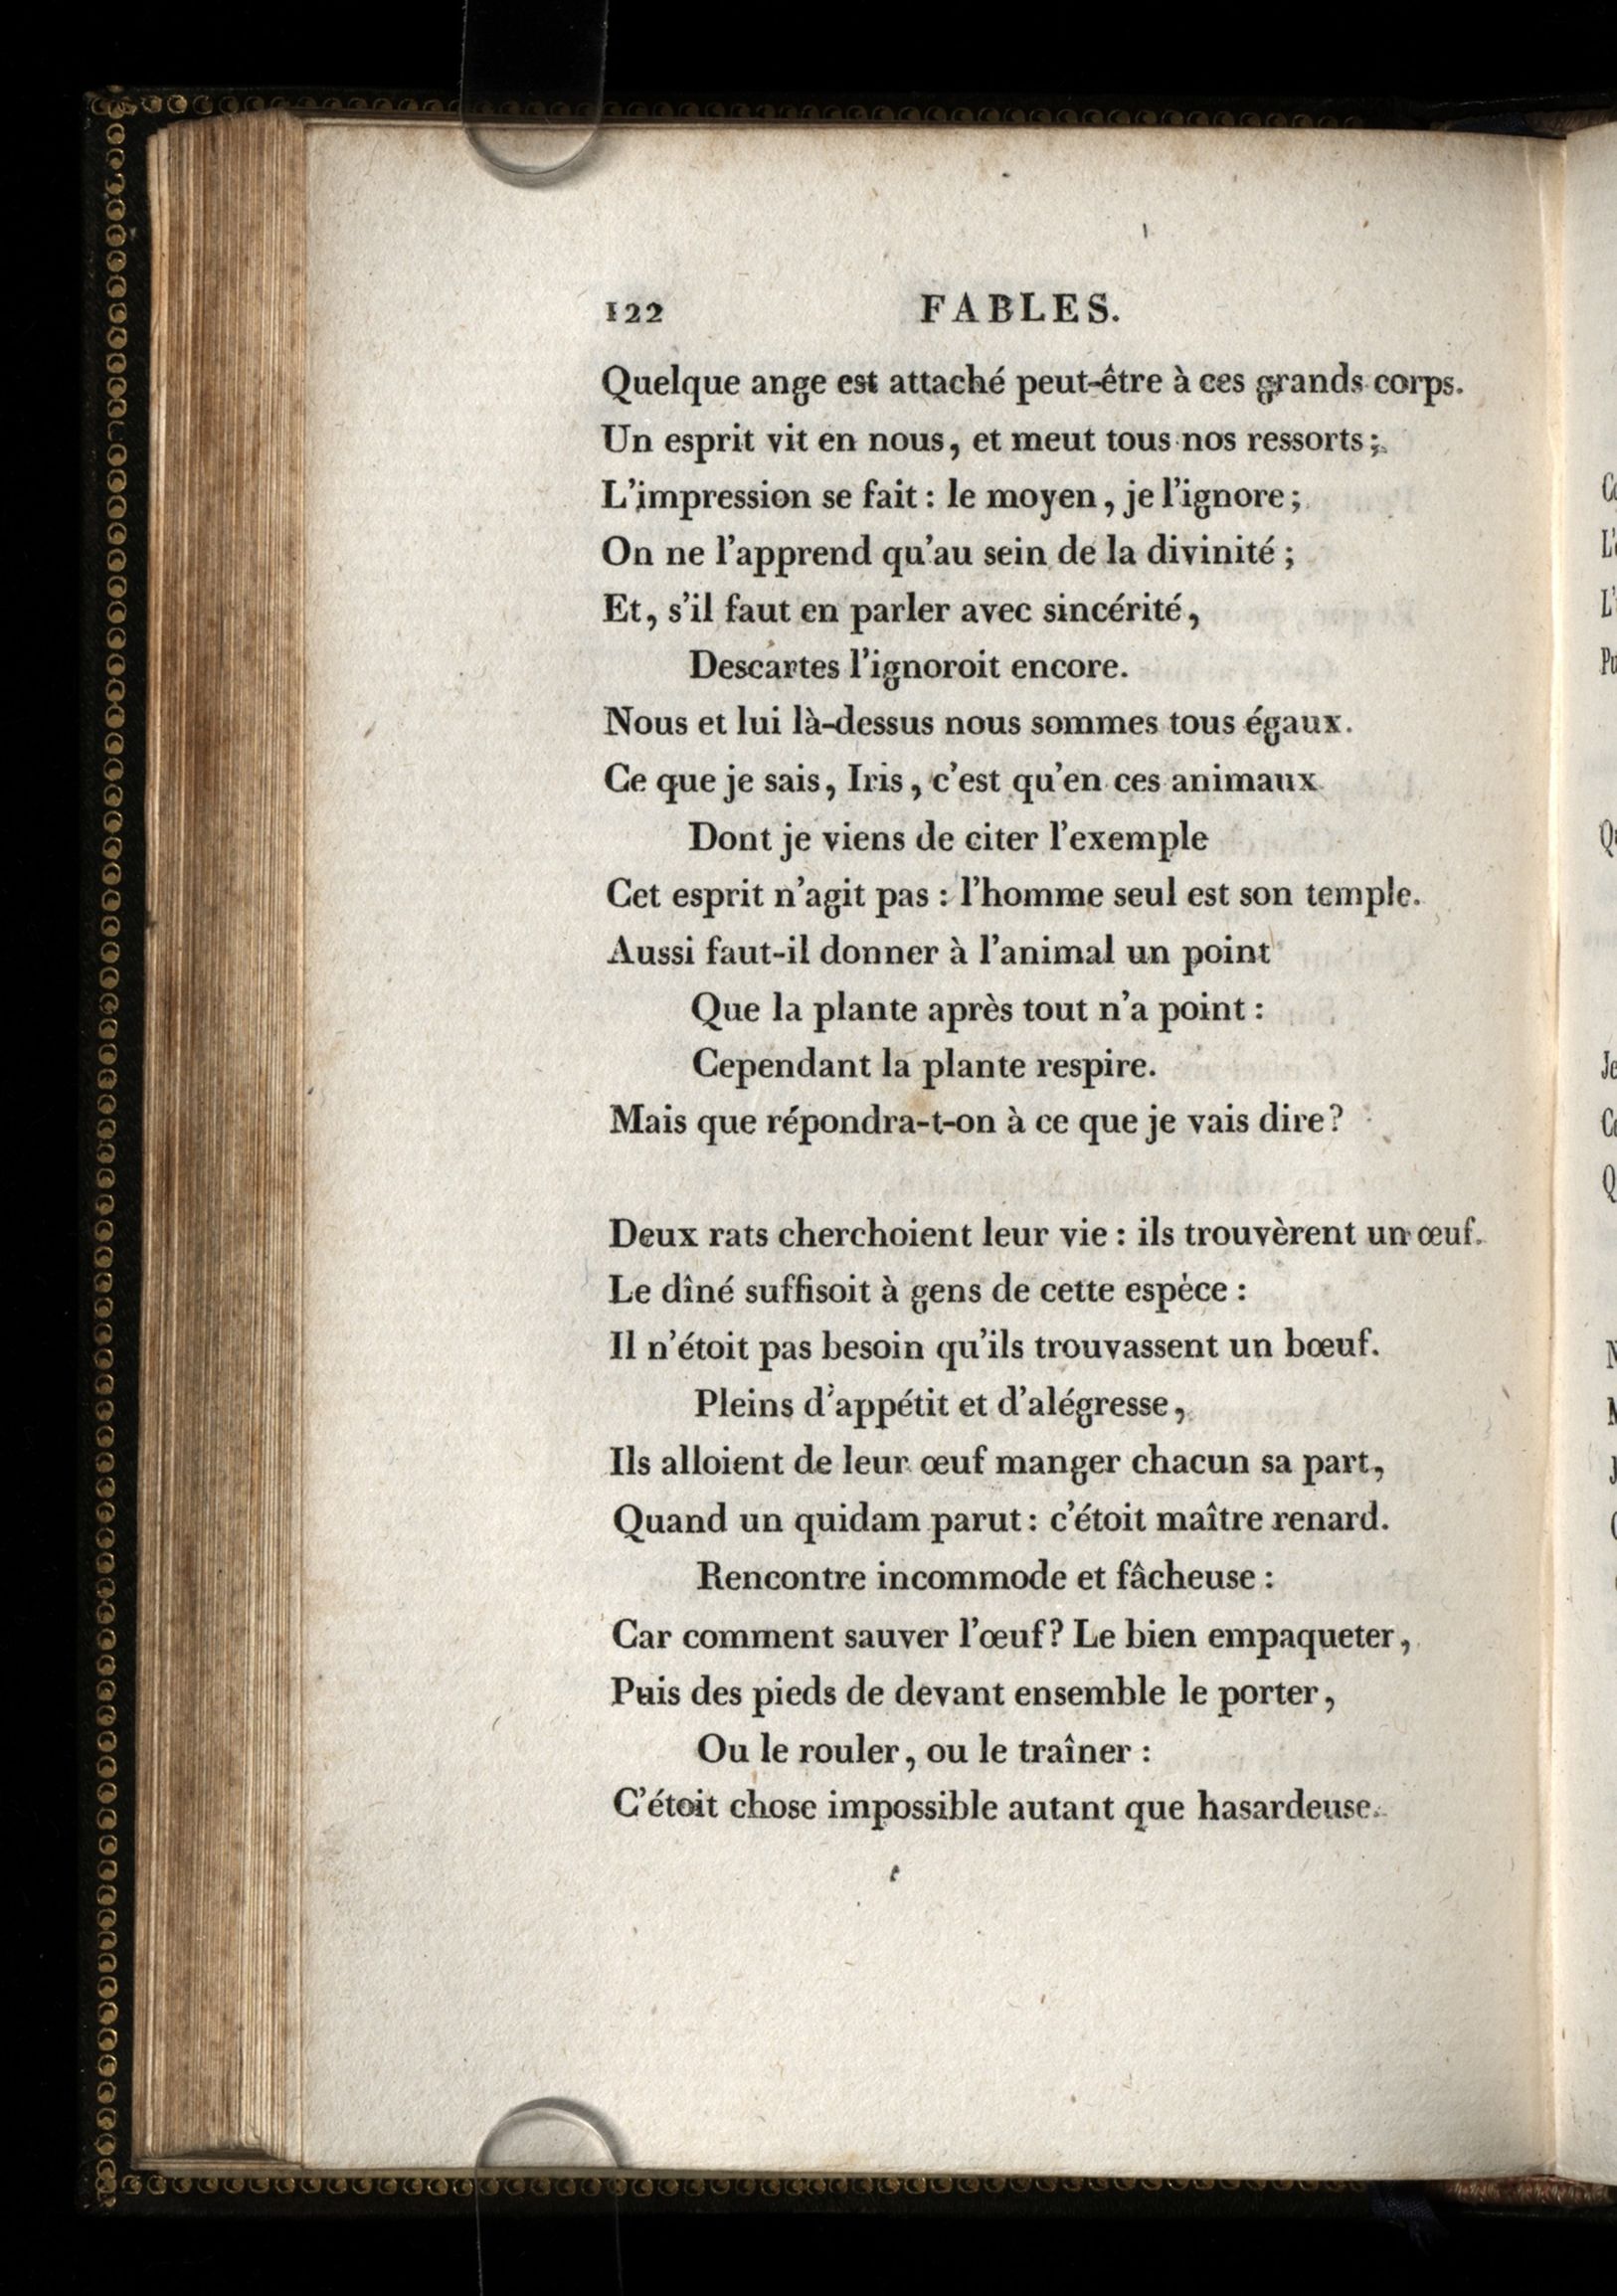 122 FABLES.
Quelque ange est attaché peut-être à ces grands corps.
Un esprit vit en nous, et meut tous nos ressorts;
L'impression se fait : le moyen, je l'ignore;
On ne l'apprend qu'au sein de la divinité;
Et, s'il faut en parler avec sincérité,
Descartes l'ignoroit encore.
Nous et lui là-dessus nous sommes tous égaux.
Ce que je sais, Iris, c'est qu'en ces animaux
Dont je viens de citer l'exemple
Cet esprit n'agit pas : l'homme seul est son temple.
Aussi faut-il donner à l'animal un point
Que la plante après tout n'a point :
Cependant la plante respire.
Mais que répondra-t-on à ce que je vais dire?
Deux rats cherchoient leur vie : ils trouvèrent un œuf.
Le dîné suffisoit à gens de cette espèce :
Il n'étoit pas besoin qu'ils trouvassent un bœuf.
Pleins d'appétit et d'alégresse,
Ils alloient de leur œuf manger chacun sa part,
Quand un quidam parut : c'étoit maître renard.
Rencontre incommode et fâcheuse :
Car comment sauver l'œuf? Le bien empaqueter,
Puis des pieds de devant ensemble le porter,
Ou le rouler, ou le traîner :
C'étoit chose impossible autant que hasardeuse.